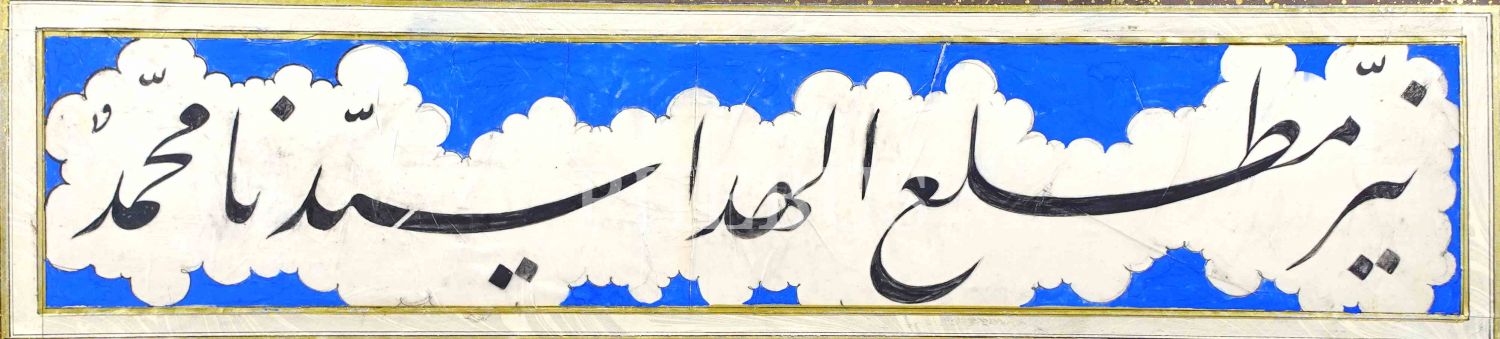 نيّر مطلع الهدا سيّدنا محمّدٌ